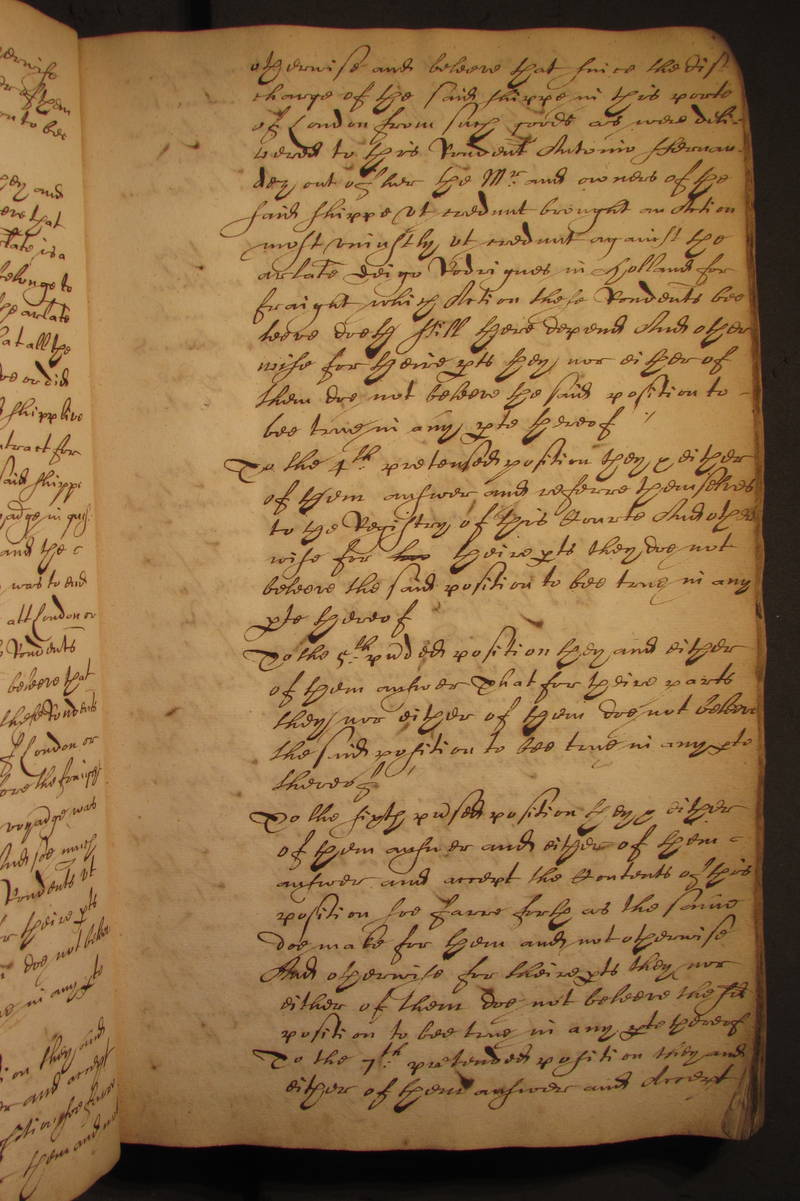 otherwise and beleeve that since the dis=
charge of the said shippe in this porte
of London from such goods as were deli=
vered to this Rondent Antonio Fernan=
dez out of her the Mr. and owners of the
said shippe vt credunt brought an Action
most vniustly vt credunt against the
arlate Deigo Rodrigues in Holland for
fraight which Action these Rondents bee
leeve doeth still there depend And other
wise for theire pts they nor either of
them doe not beleeve the said position to
bee true in any pte thereof
To the 4th. pretensed position they & either
of them answer and referre themselves
to the Registry of this Courte And other
wise for theire pts they doe not
beleeve the said position to bee true in any
pte thereof
To the 5th. position they and either
of them answer That for theire parts
they nor either of them doe not beleeve
the said position to bee true in any pte
thereof
To the sixth position they & either
of them answer and either of them
answer and accept the Contents of this
position soe farre forth as the same
doe make for them and not otherwise
And otherwise for theire pts they nor
either of them doe not beleeve the sd
position to bee true in any pte thereof
To the 7th. pretended position they and
either of them answer and Accept
erwise
or of them
on to bee
they and
eve that
rlate is a
belonge to
the arlate
at all the
ve or did
shipp live
ntract for
said shipp
and the
was to end
att London or
Rondents
beleeve that
these Rondents
of London or
ore the fraight
voyadge was
And soe much
Rondents vt
r theire pts
doe not beleeve
e in any pte
on they and
er and accept
position soe farre
them and not